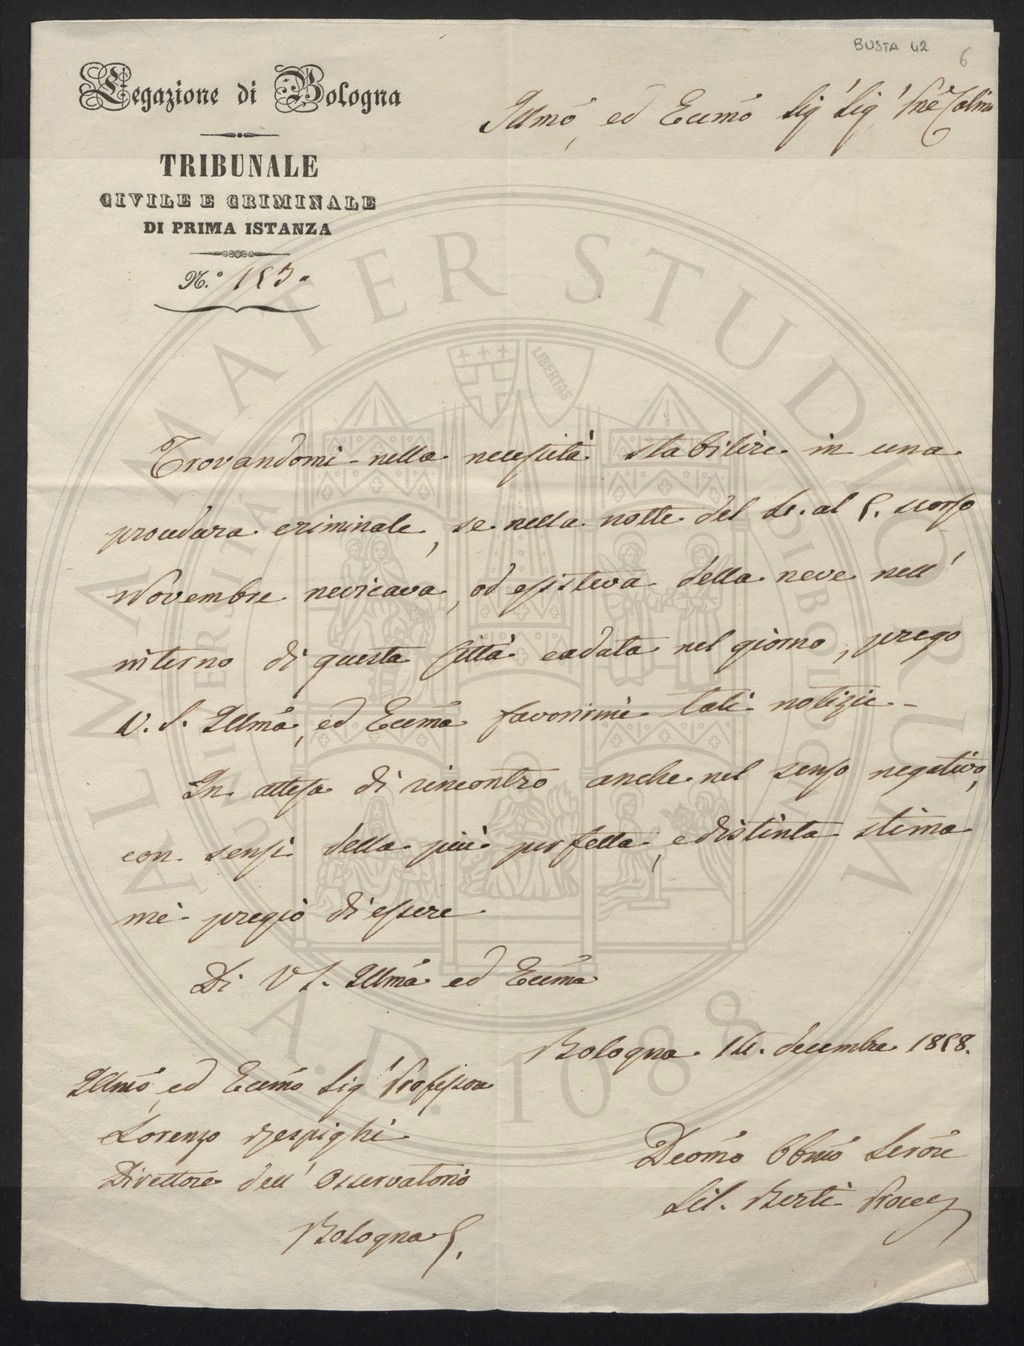 BUSTA 42
6
Legazione di Bologna
Illmo, ed Eccmo Sig.r Sig.r Pne Colmo
TRIBUNALE
CIVILE E CRIMINALE
DI PRIMA ISTANZA
N.° 153.
Trovandomi nella necessità stabilire in una
procedura criminale, se nella notte del 4. al 5. scorso
Novembre nevicava, od esisteva della neve nell'
interno di questa Città caduta nel giorno, prego
V. S. Illma, ed Eccma favorirmi tali notizie.
In attesa di rincontro anche nel senso negativo,
con sensi della più perfetta, e distinta stima
mi pregio di essere
Di V S. Illma ed Eccma
Bologna 14. decembre 1858.
Illmo, ed Eccmo Sig.r Professore
Lorenzo Respighi
Direttore dell' Osservatorio
Bologna
Devmo Obbmo Servre
Berti
ALMA MATER STUDIORUM
UNIVERSITÀ DI BOLOGNA
LIBERTAS
A.D. 1088